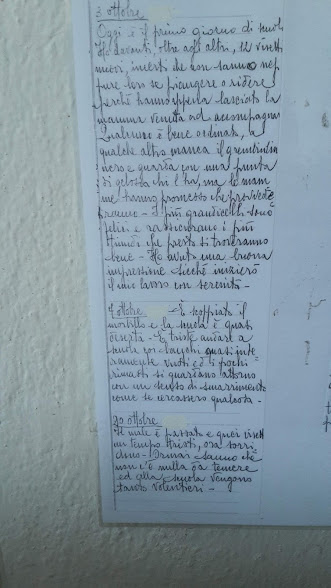 3 ottobre
Oggi è il primo giorno di scuola
Ho davanti, oltre agli altri, 12 visetti
nuovi, incerti che non sanno nep
pure loro se piangere o ridere
perchè hanno appena lasciato la
mamma venuta ad accompagnarli
Qualcuno è bene ordinato, a
qualche altro manca il grembiulino
nero e guarda con una punta
di gelosia chi l'ha, ma le mam
me hanno promesso che provvede
ranno - I più grandicelli sono
felici e rassicurano i più
timidi che presto si troveranno
bene - Ho avuto una buona
impressione sicchè inizierò
il mio lavoro con serenità -
7 ottobre - È scoppiato il
morbillo e la scuola è quasi
deserta - È triste andare a
scuola coi banchi quasi inte
ramente vuoti e i pochi
rimasti si guardano attorno
con un senso di smarrimento
come se cercassero qualcosa -
20 ottobre
Il male è passato e quei visetti
un tempo tristi, ora sorri
dono - Ormai sanno che
non c'è nulla da temere
ed alla scuola vengono
tanto volentieri -